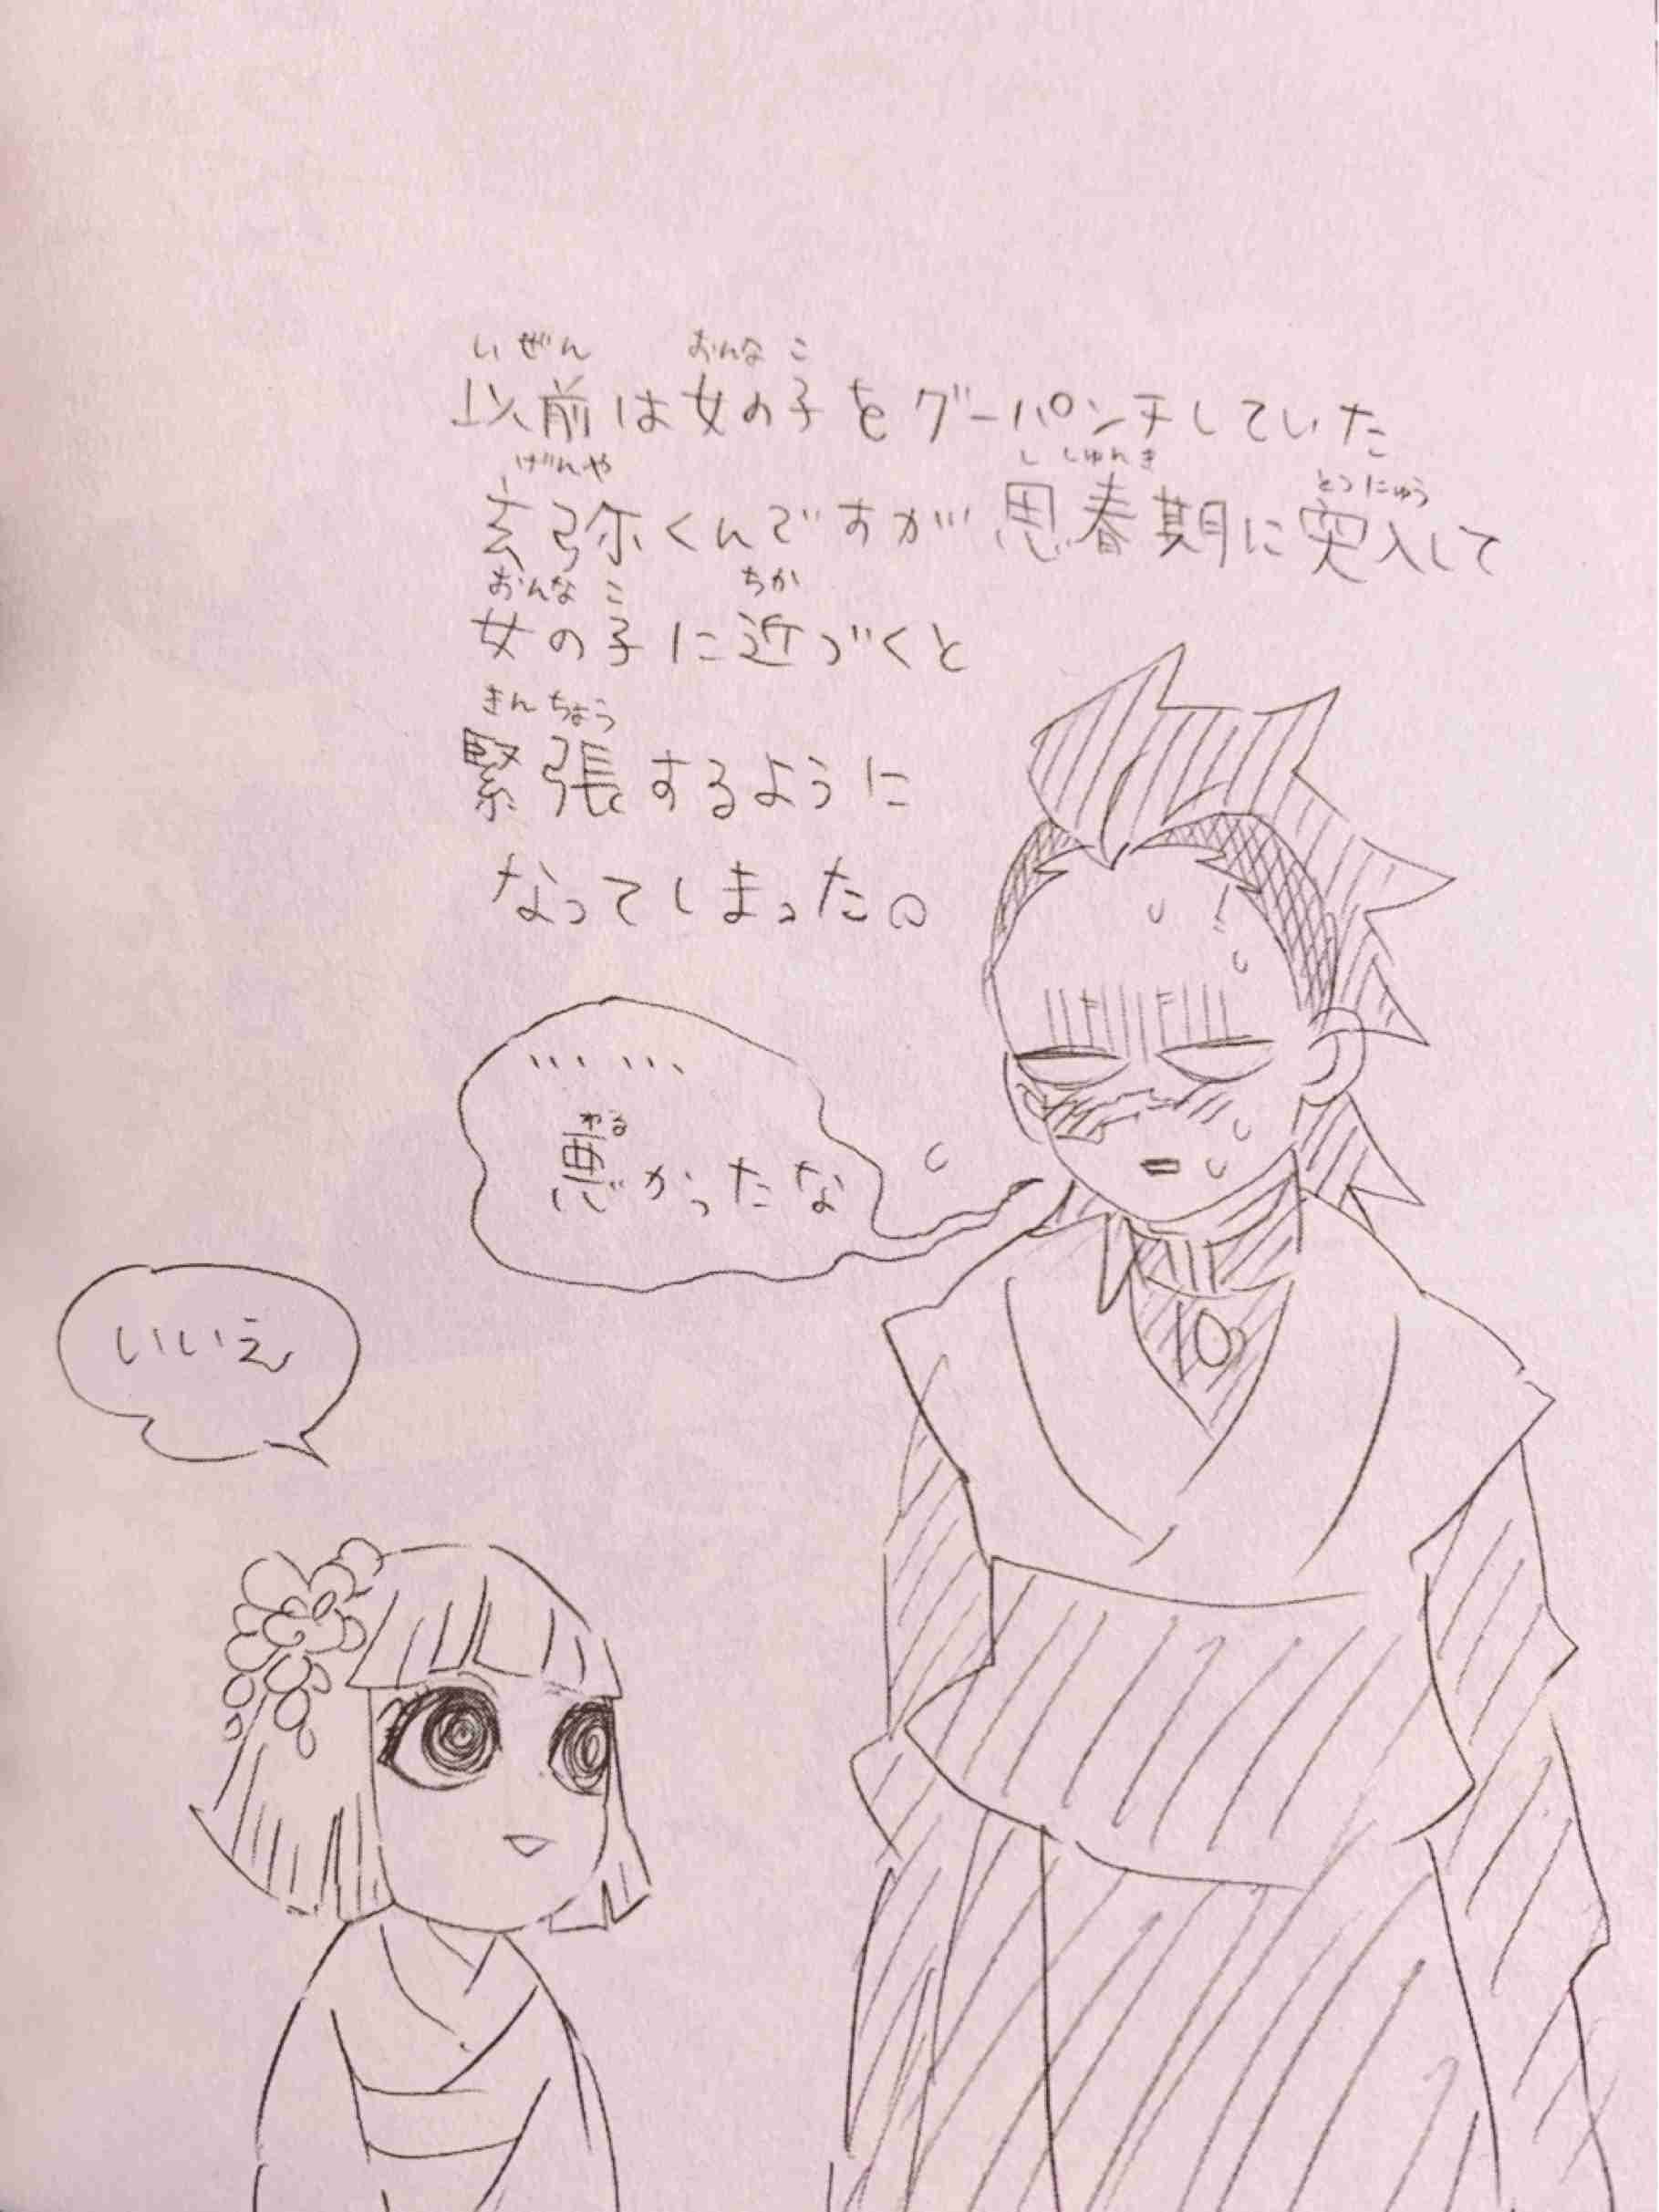 以前は女の子をグーパンチしていた
いぜん おんな こ
玄弥くんですが思春期に突入して
げんや ししゅんき とつにゅう
女の子に近づくと
おんな こ ちか
緊張するように
きんちょう
なってしまった。
……
悪かったな
わる
いいえ